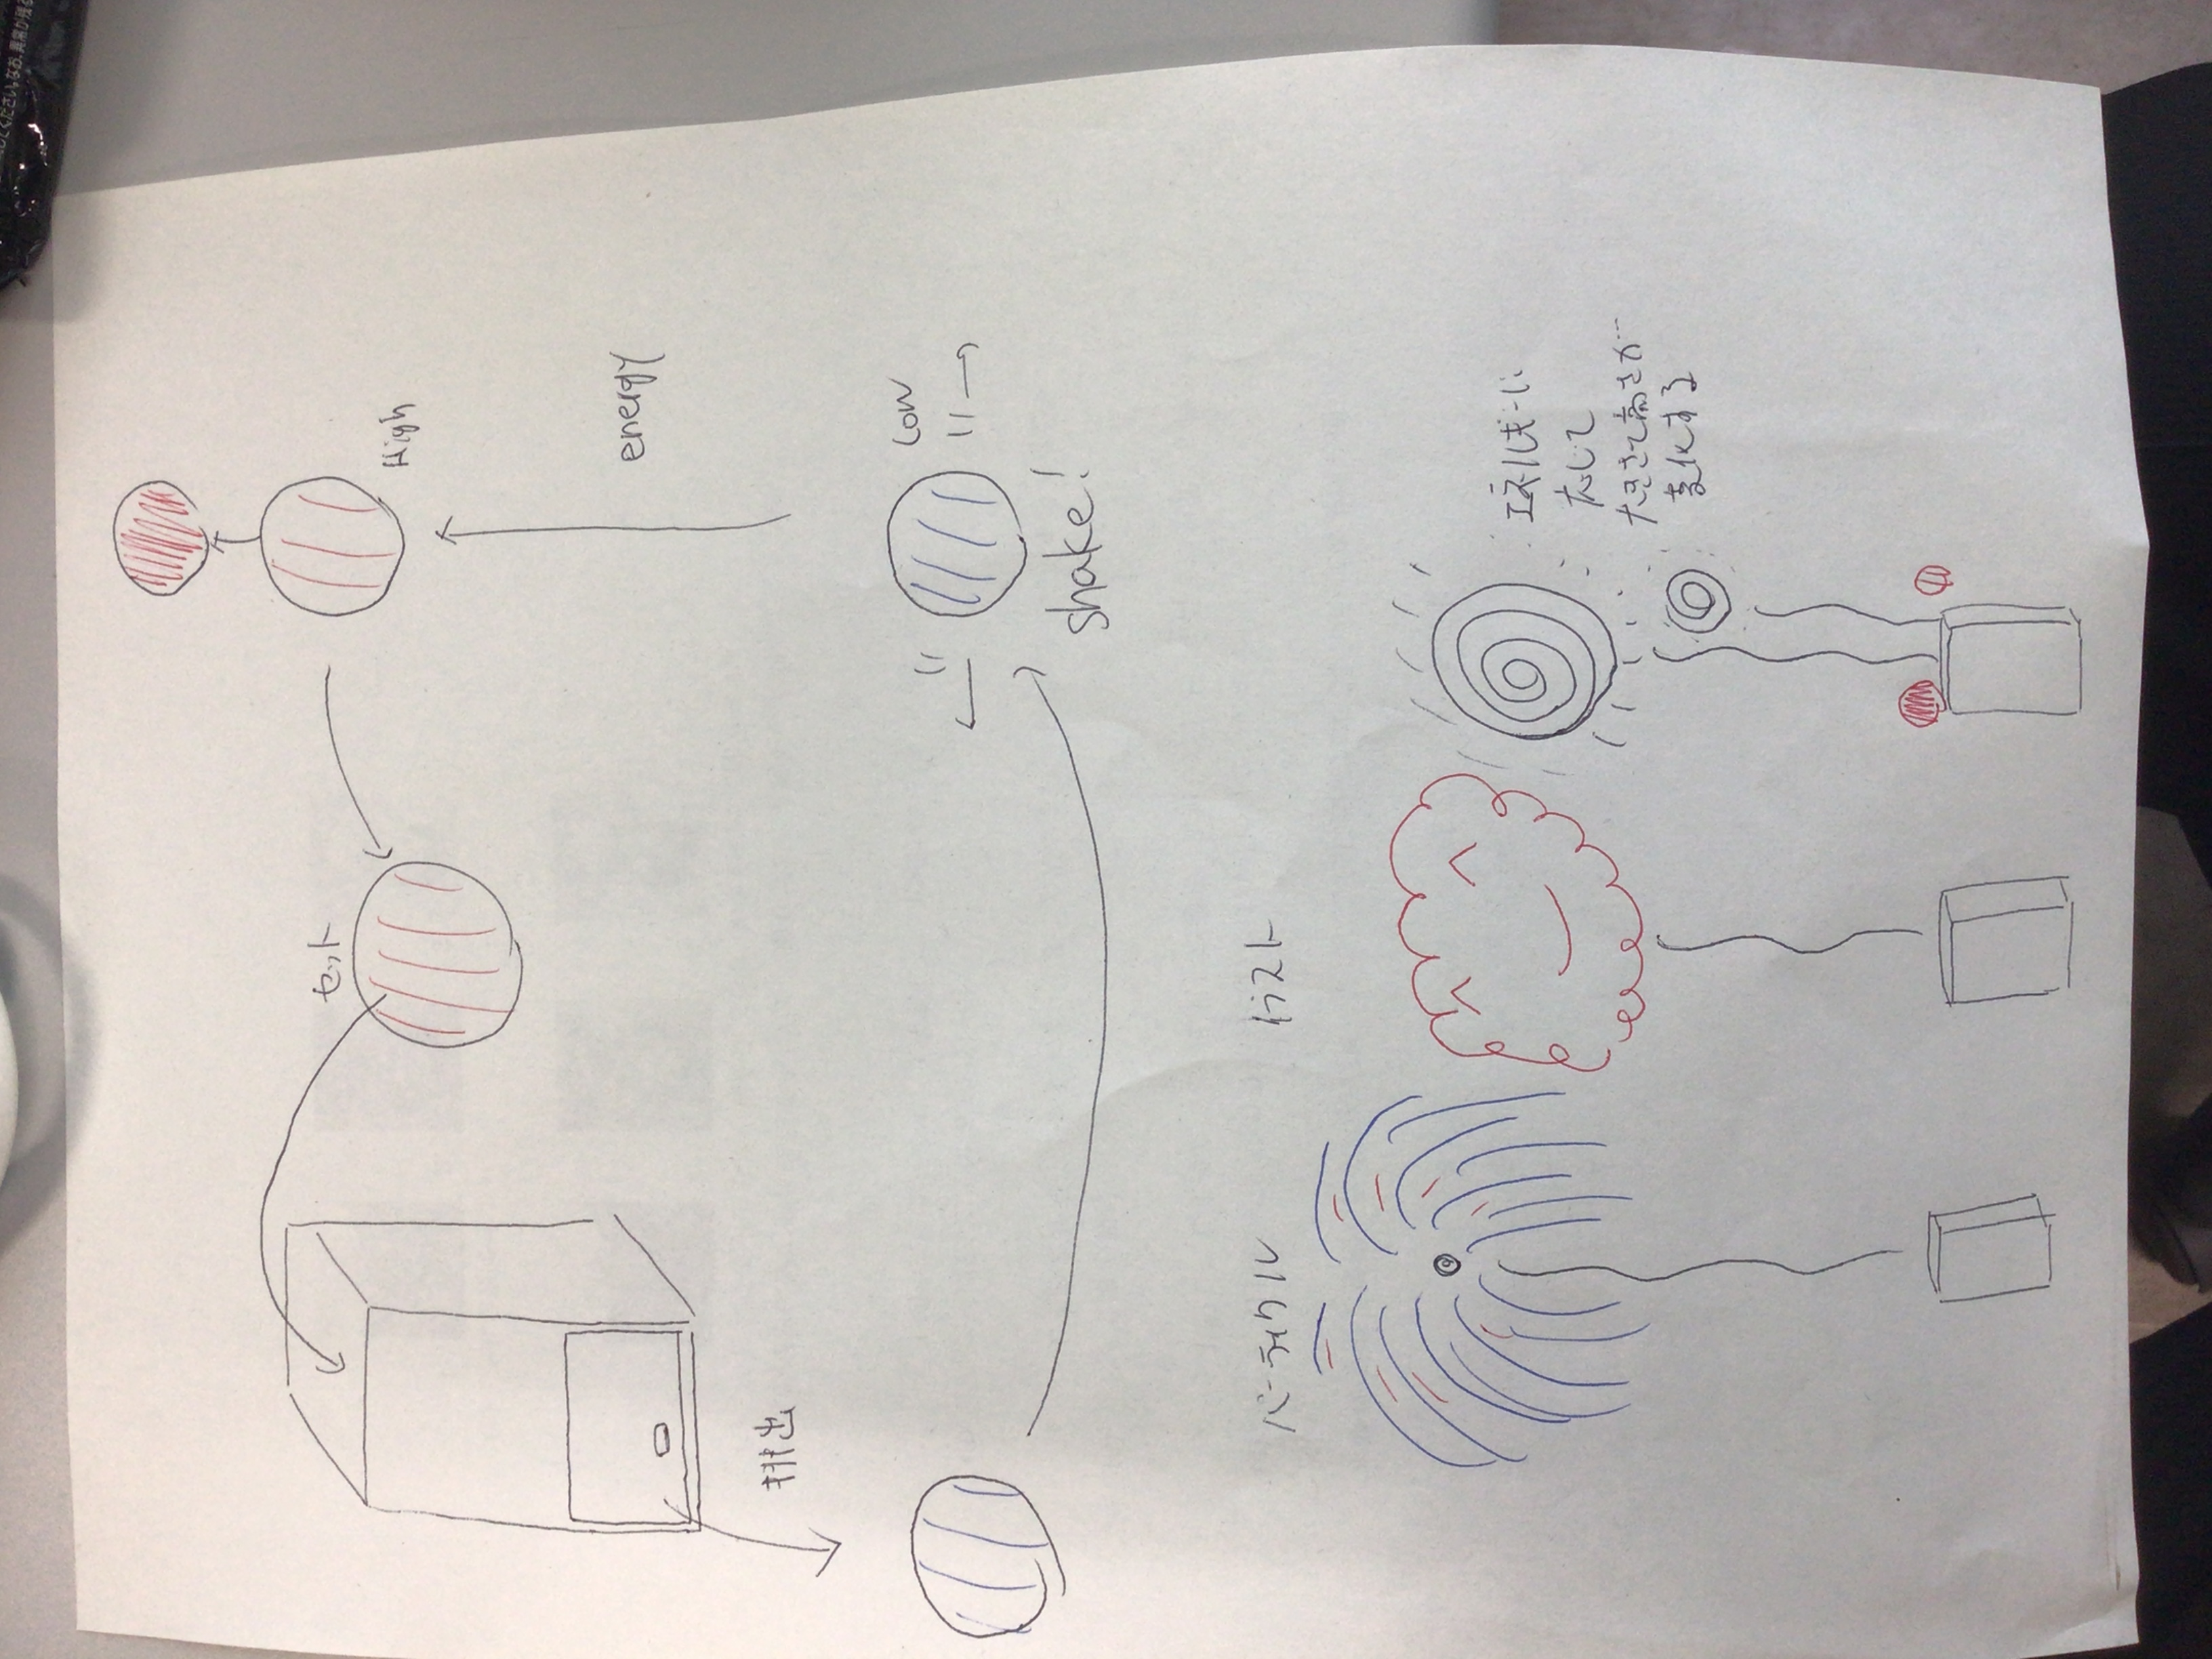 してください。なお、異常が残る
セット
High
energy
排出
Low
shake!
パーティクル
イラスト
エネルギーに
応じて
大きさで高さが
変化する